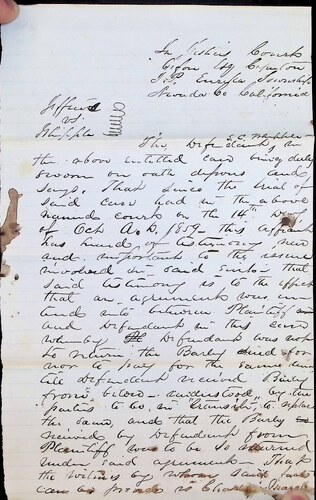 In Justice Court
J.P. Eureka Township
Nevada Co California
Jeffries
vs.
Whipple
The Defendant, in
the above entitled case being duly
sworn on oath deposes and
says. That since the trial of
said case had in the above
named court on the 14th Day
of Oct A.D. 1859 – this affiant
has heard of testimony new
and important to the issue
involved in said suit – that
said testimony is to the effect
that an agreement was en
tered into between Plaintiff
and Defendant in this case
whereby Defendant was not
to return the Barly
nor to pay for the same un
till Defendant received Barly
from below – understood by the
parties to be in "transitu" to replace
the same, and that the Barly
received by Defendant from
Plaintiff was to be so returned
under said agreement – That
the witness by whom said fact
can be proved is